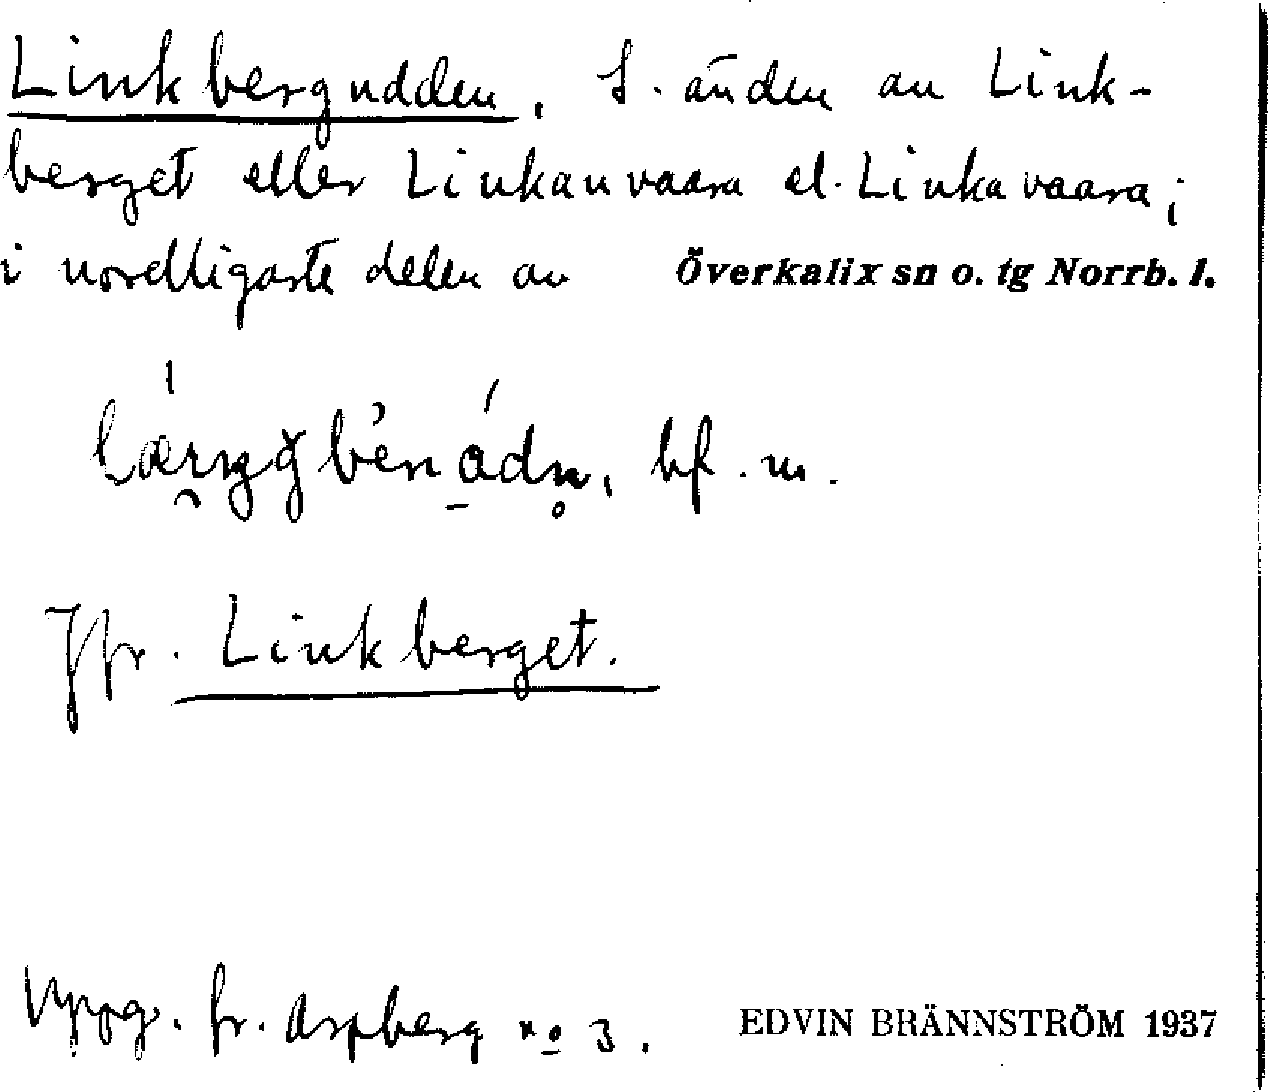 Linkbergudden, S. änden av Link-
berget eller Linkanvaara el. Linkavaara;
i nordligaste delen av Överkalix sn o. tg Norrb. l.
bf. m.
Jfr. Linkberget.
Uppg. fr. Aspberg no 3. EDVIN BRÄNNSTRÖM 1937